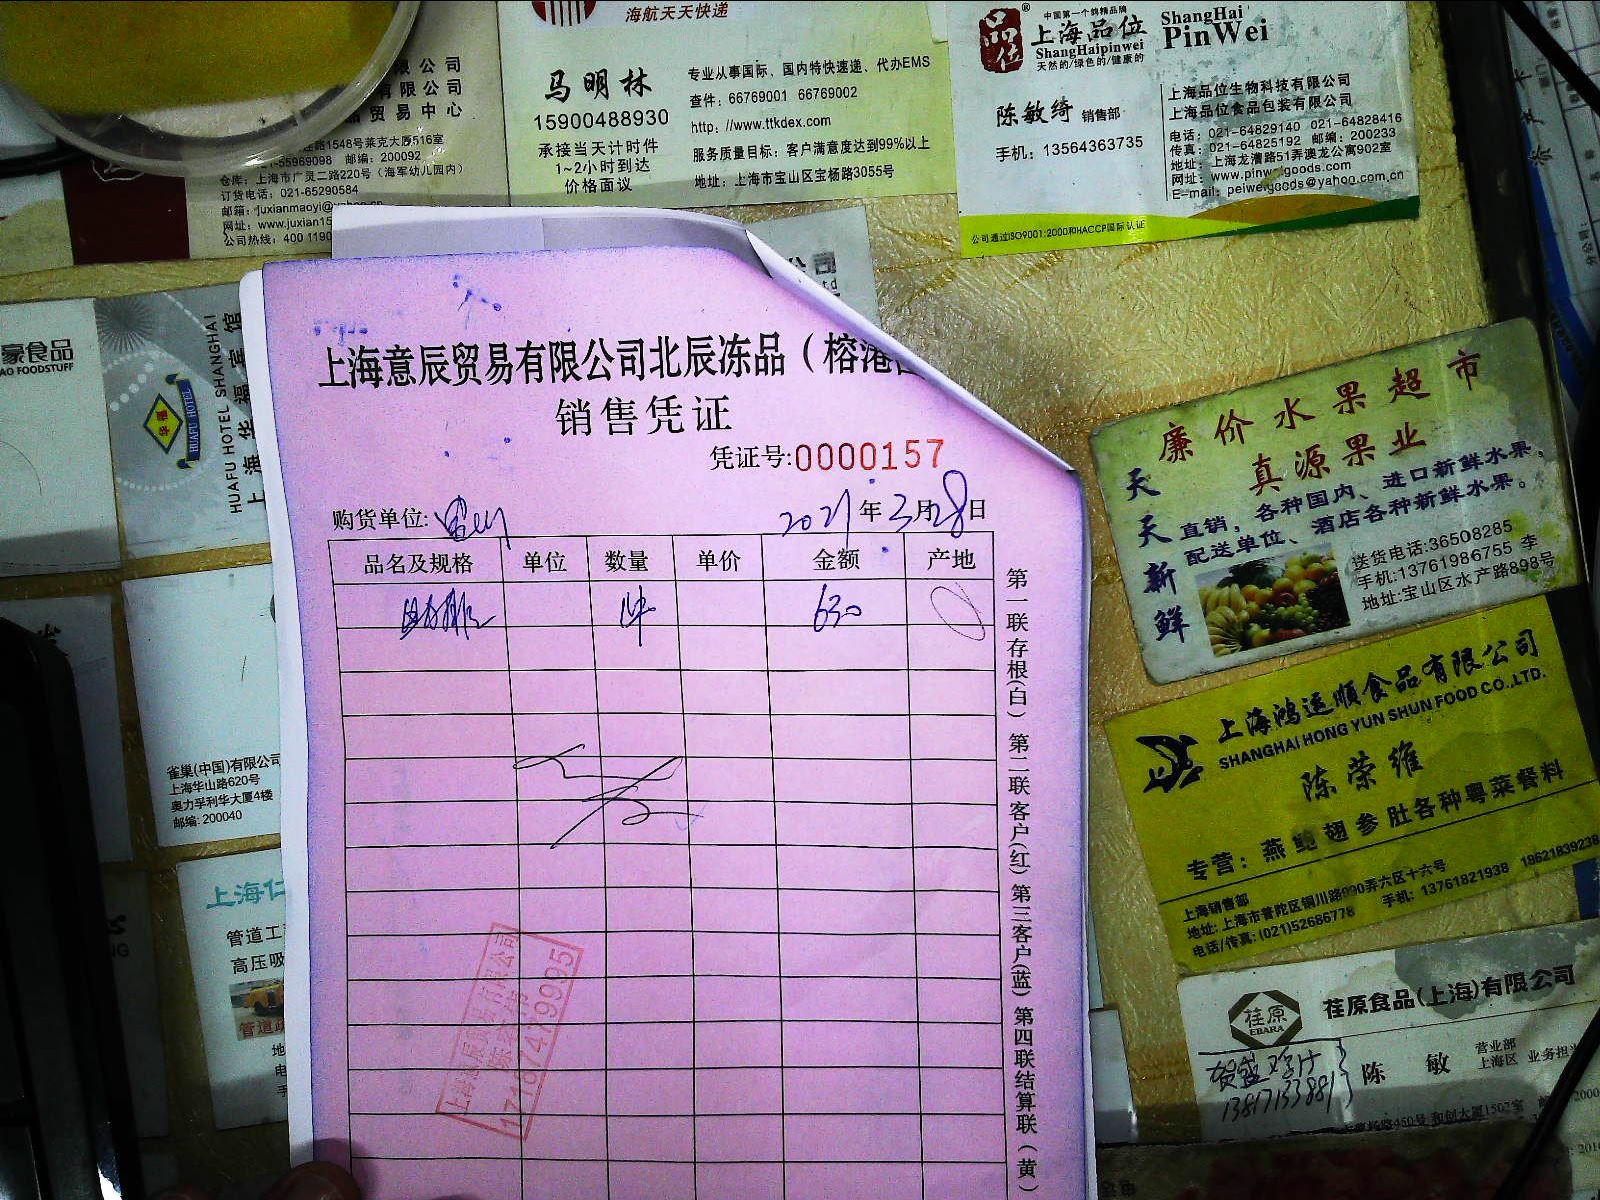 海航天天快递
马明林
15900488930
承接当天计时件
1~2小时到达
价格面议
专业从事国际、国内特快速递、代办EMS
查件：66769001 66769002
http: //www.ttkdex.com
服务质量目标：客户满意度达到99%以上
地址：上海市宝山区宝杨路3055号
品位
中国第一个鸽精品牌
上海品位
ShangHaipinwei
天然的/绿色的/健康的
ShangHai
PinWei
陈敏绮 销售部
手机：13564363735
上海品位生物科技有限公司
上海品位食品包装有限公司
电话：021-64829140 021-64828416
传真：021-64825192 邮编：200233
地址：上海龙漕路51弄澳龙公寓902室
网址：www.pinweigoods.com
E-mail：peiwe.goods@yahoo.com.cn
公司通过ISO9001:2000和HACCP国际认证
限公司
有限公司
贸易中心
路1548号莱克大厦516室
-55969098 邮编：200092
仓库：上海市广灵二路220号（海军幼儿园内）
订货电话：021-65290584
邮箱：juxianmaoyi@yahoo.cn
网址：www.juxian15
公司热线：400 1190
豪食品
AO FOODSTUFF
HUAFU HOTEL
HUAFU HOTEL SHANGHAI
上海华福宾馆
雀巢(中国)有限公司
上海华山路620号
奥力孚利华大厦4楼
邮编: 200040
上海仁
管道工
高压吸
管道疏
上海意辰贸易有限公司北辰冻品（榕港
销售凭证
凭证号:0000157
购货单位:
2021年3月28日
品名及规格 单位 数量 单价 金额 产地
630
第一联存根(白) 第二联客户(红) 第三客户(蓝) 第四联结算联(黄)
上海意辰贸易有限公司
17187479995
廉价水果超市
真源果业
天天新鲜
直销，各种国内、进口新鲜水果，
配送单位、酒店各种新鲜水果。
送货电话:36508285
手机:13761986755 李
地址:宝山区水产路898号
上海鸿运顺食品有限公司
SHANGHAI HONG YUN SHUN FOOD CO.,LTD.
陈荣维
专营：燕鲍翅参肚各种粤菜餐料
上海销售部
地址: 上海市普陀区铜川路990弄六区十六号
电话/传真: (021)52686778 手机: 13761821938 18621839238
荏原
EBARA
荏原食品(上海)有限公司
陈敏
营业部
上海区 业务担当
13817133881